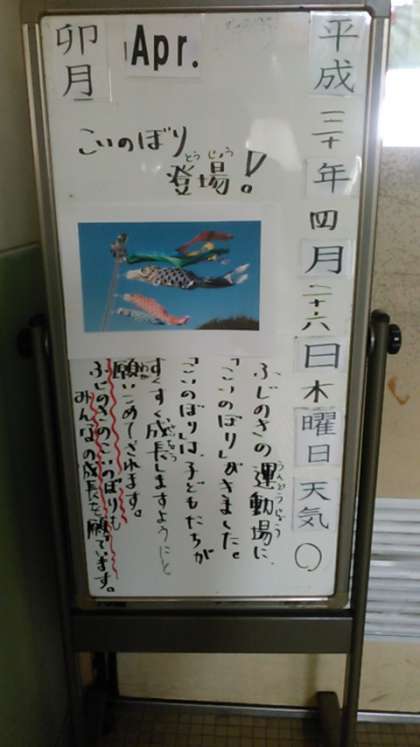 平成三十年四月二十六日木曜日天気〇
卯月
Apr.
こいのぼり
とうじょう
登場!
うんどうじょう
ふじのきの運動場に、
「こいのぼり」がきました。
「こいのぼり」は、子どもたちが
すくすく成長しますようにと
願いこめてされます。
ふじのきのこいのぼりも
みんなの成長を願っています。